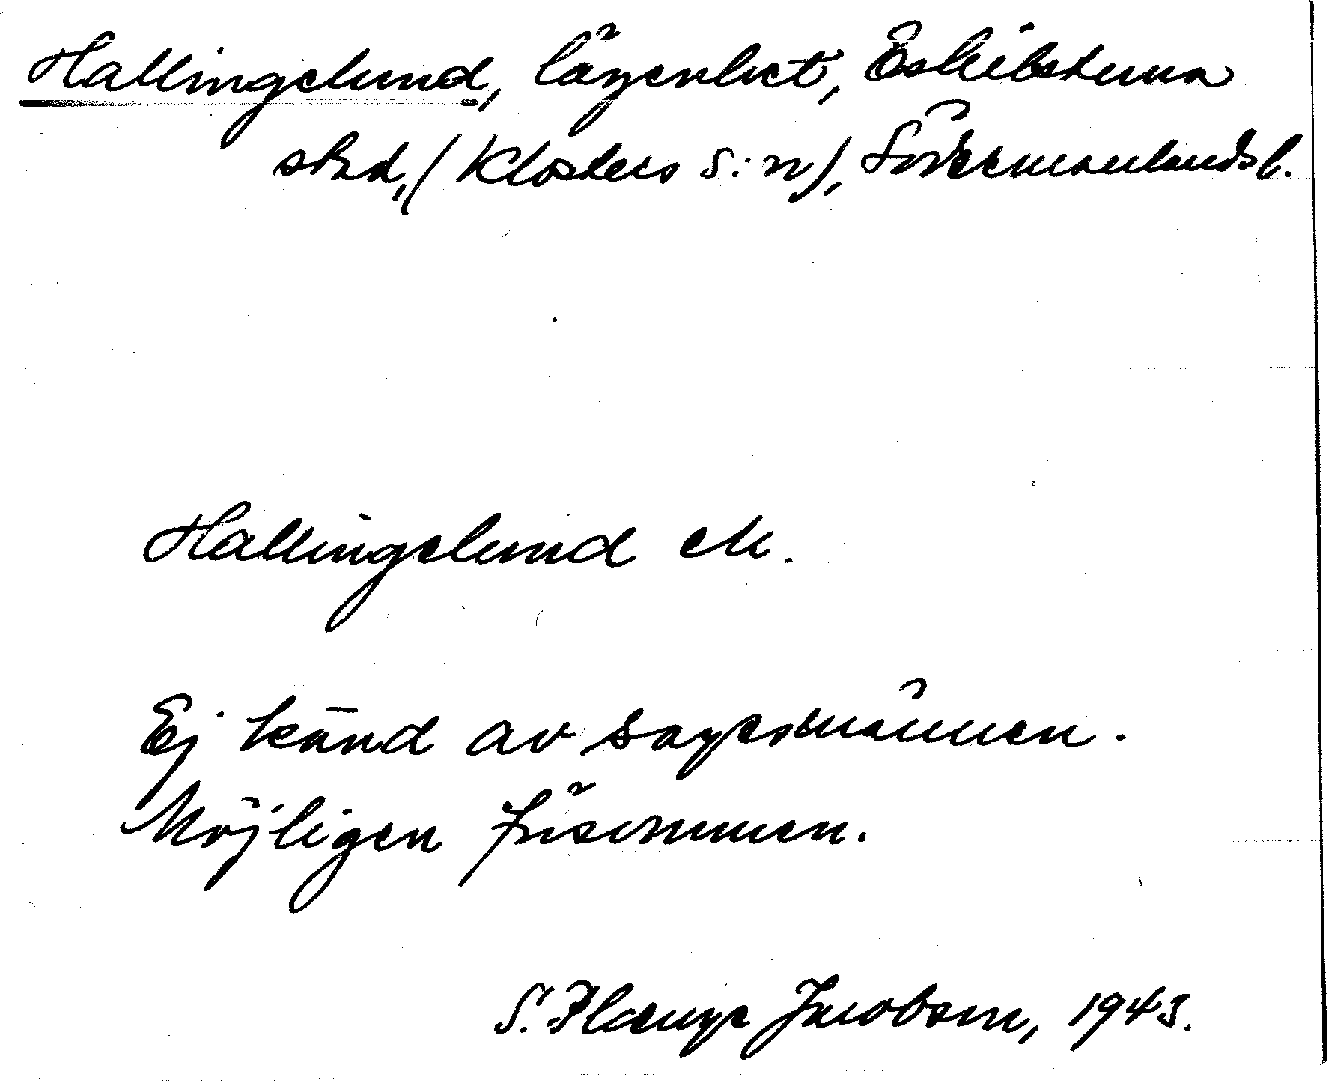 Hallingelund, lägenhet, Eskilstuna
stad, (Klosters s:n), Södermanlands l.
Hallingelund ek.
Ej känd av sagesmännen.
Möjligen försvunnen.
Jacobson, 1943.